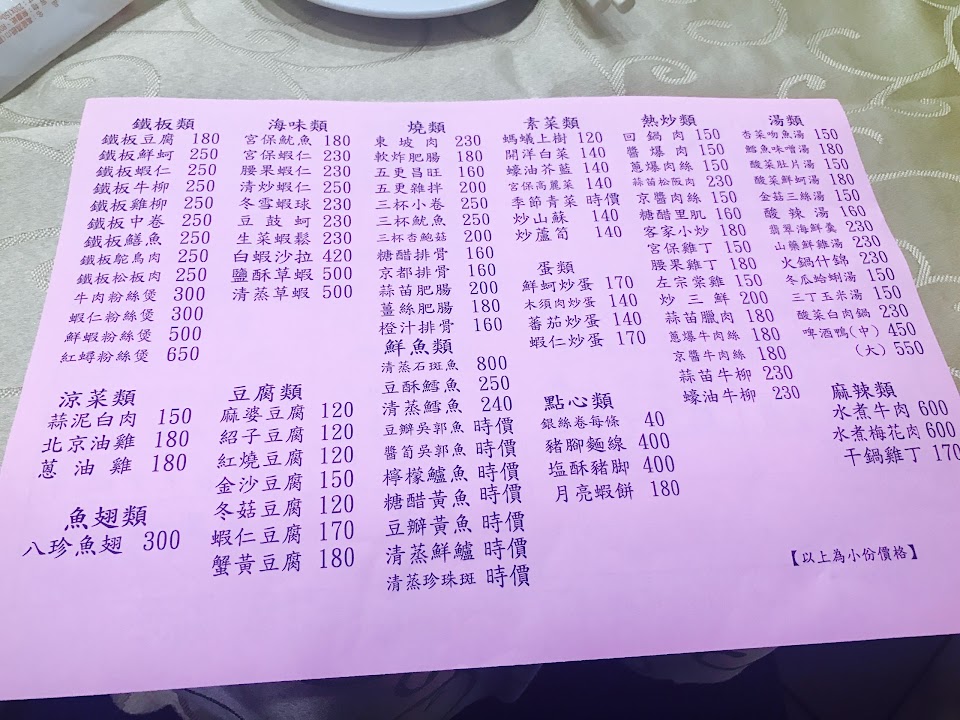 鐵板類
鐵板豆腐 180
鐵板鮮蚵 250
鐵板蝦仁 250
鐵板牛柳 250
鐵板雞柳 250
鐵板中卷 250
鐵板鱔魚 250
鐵板鴕鳥肉 250
鐵板松板肉 250
牛肉粉絲煲 300
蝦仁粉絲煲 300
鮮蝦粉絲煲 500
紅蟳粉絲煲 650
涼菜類
蒜泥白肉 150
北京油雞 180
蔥油雞 180
魚翅類
八珍魚翅 300
海味類
宮保魷魚 180
宮保蝦仁 230
腰果蝦仁 230
清炒蝦仁 230
冬雪蝦球 230
豆鼓蚵 230
生菜蝦鬆 230
白蝦沙拉 420
鹽酥草蝦 500
清蒸草蝦 500
豆腐類
麻婆豆腐 120
紹子豆腐 120
紅燒豆腐 120
金沙豆腐 150
冬菇豆腐 120
蝦仁豆腐 170
蟹黃豆腐 180
燒類
東坡肉 230
軟炸肥腸 180
五更昌旺 160
五更雜拌 200
三杯小卷 250
三杯魷魚 250
三杯杏鮑菇 200
糖醋排骨 160
京都排骨 160
蒜苗肥腸 200
薑絲肥腸 180
橙汁排骨 160
鮮魚類
清蒸石斑魚 800
豆酥鱈魚 250
清蒸鱈魚 240
豆瓣吳郭魚 時價
醬筍吳郭魚 時價
檸檬鱸魚 時價
糖醋黃魚 時價
豆瓣黃魚 時價
清蒸鮮鱸 時價
清蒸珍珠斑 時價
素菜類
螞蟻上樹 120
開洋白菜 140
蠔油芥藍 140
宮保高麗菜 140
季節青菜 時價
炒山蘇 140
炒蘆筍 140
蛋類
鮮蚵炒蛋 170
木須肉炒蛋 140
蕃茄炒蛋 140
蝦仁炒蛋 170
點心類
銀絲卷每條 40
豬腳麵線 400
塩酥豬腳 400
月亮蝦餅 180
熱炒類
回鍋肉 150
醬爆肉 150
蔥爆肉絲 150
蒜苗松阪肉 230
京醬肉絲 150
糖醋里肌 160
客家小炒 180
宮保雞丁 150
腰果雞丁 180
左宗棠雞 150
炒三鮮 200
蒜苗臘肉 180
蔥爆牛肉絲 180
京醬牛肉絲 180
蒜苗牛柳 230
蠔油牛柳 230
湯類
杏菜吻魚湯 150
鱈魚味噌湯 180
酸菜肚片湯 150
酸菜鮮蚵湯 180
金菇三絲湯 150
酸辣湯 160
翡翠海鮮羹 230
山藥鮮雞湯 230
火鍋什錦 230
冬瓜蛤蜊湯 150
三丁玉米湯 150
酸菜白肉鍋 230
啤酒鴨(中) 450
(大) 550
麻辣類
水煮牛肉 600
水煮梅花肉 600
干鍋雞丁 170
【以上為小份價格】